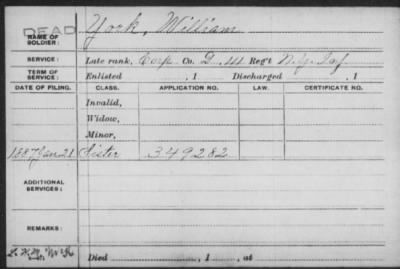 DEAD
NAME OF SOLDIER: York, William
SERVICE: Late rank, Corp Co. D, 111 Reg't N.Y. Inf.
TERM OF SERVICE: Enlisted , 1 Discharged , 1
DATE OF FILING. CLASS. APPLICATION NO. LAW. CERTIFICATE NO.
Invalid,
Widow,
Minor,
1887 Jan 21 Sister 349282
ADDITIONAL SERVICES:
REMARKS:
Died , 1 , at